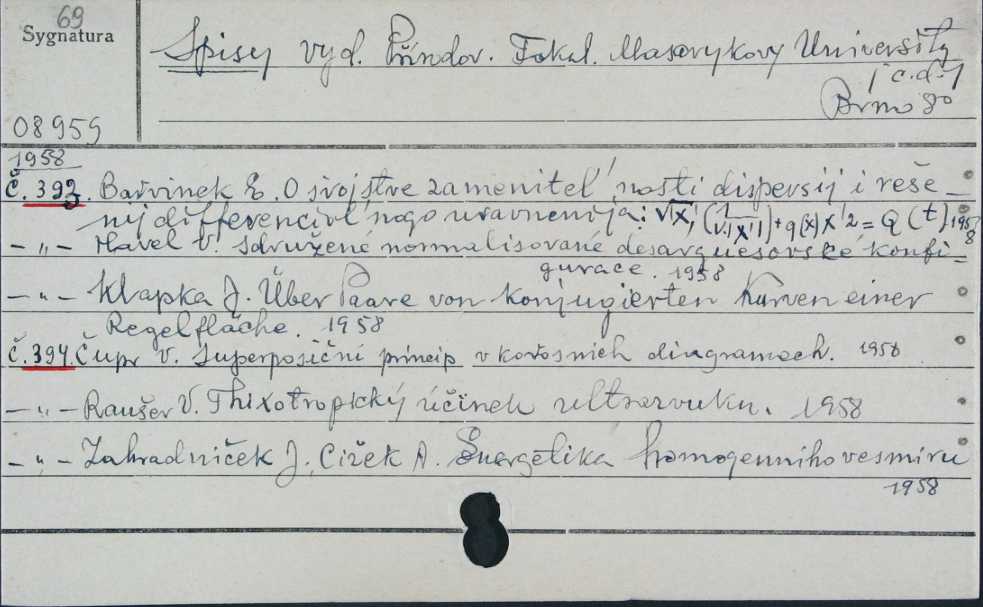 69
Sygnatura
Spisy vyd. Přírodov. Fakul. Masarykovy University
/c.d./
Brno 8°
08959
1958
Č. 393. Barvinek E. O svojstve zamenitel'nosti dispersij i reše-
nij differencial'nogo uravnenija:
1958
- „ - Havel V. Sdružené normalisované desarguesovské konfi-
gurace. 1958
- „ - Klapka J. Über Paare von konjugierten Kurven einer
Regelfläche. 1958
Č. 394. Čupr V. Superposiční princip v kovosních diagramech. 1958
- „ - Raušer V. Thixotropický účinek ultrazvuku. 1958
- „ - Zahradníček J. Cižek A. Energetika homogenního vesmíru
1958